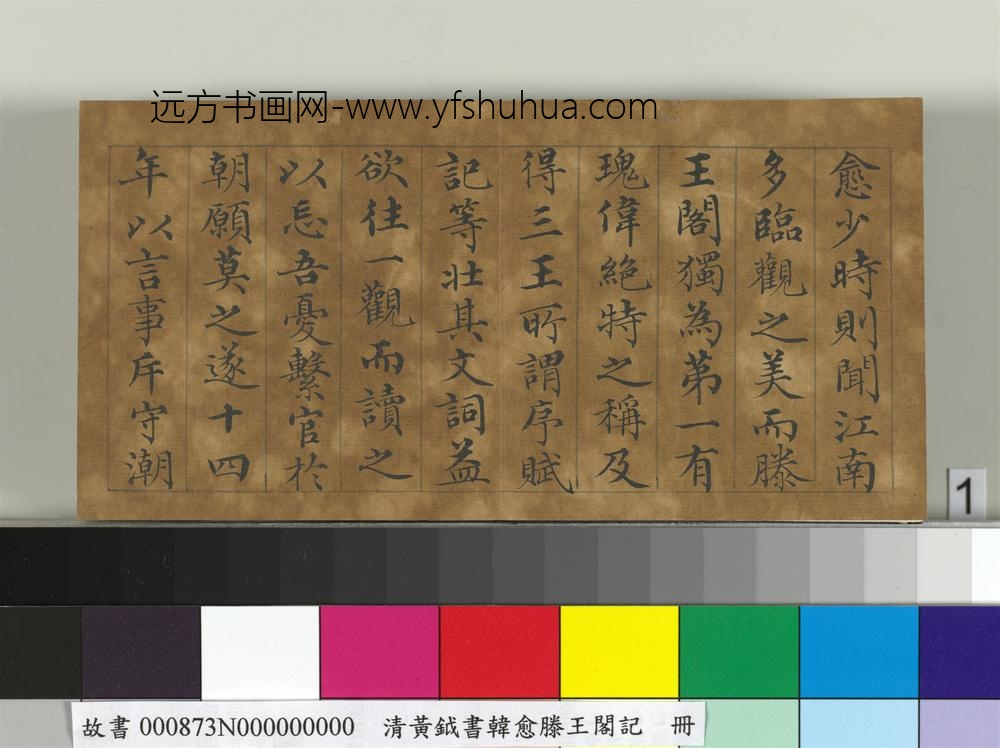 远方书画网-www.yfshuhua.com
愈少時則聞江南
多臨觀之美而滕
王閣獨為第一有
瑰偉絕特之稱及
得三王所謂序賦
記等壯其文詞益
欲往一觀而讀之
以忘吾憂繫官於
朝願莫之遂十四
年以言事斥守潮
1
故書 000873N000000000 清黃鉞書韓愈滕王閣記 冊